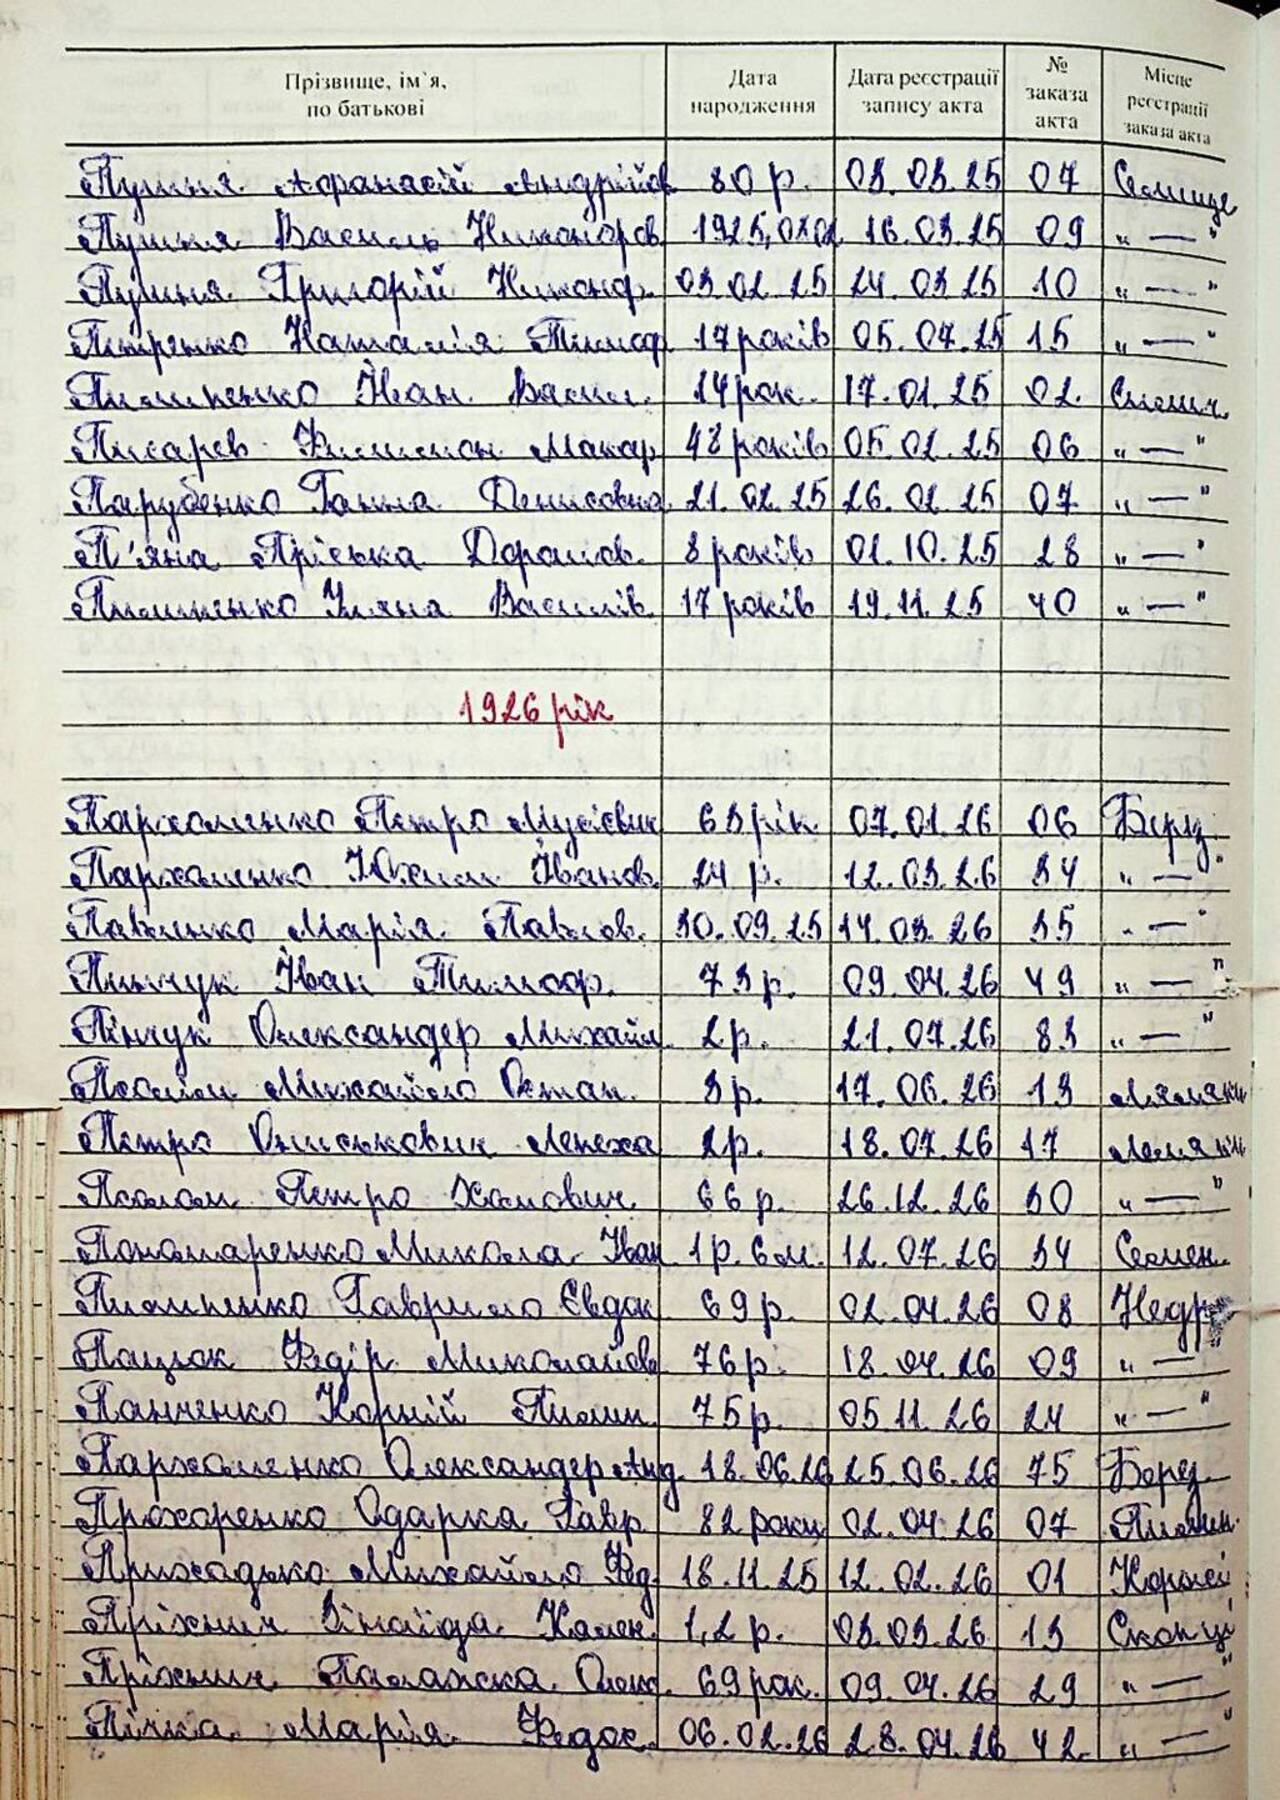 Прізвище, ім`я, по батькові Дата народження Дата реєстрації запису акта № заказа акта Місце реєстрації заказа акта
Пушня Афанасій Андрійов 80 р. 03.03.25 07 Селище
Пушня Василь Никоноров 1925, 16.03.25 09 „ — "
Пушня Григорій Никонор. 03.02.25 24.03.25 10 „ — "
Петренко Наталія Тимоф. 17 років 05.07.25 15 „ — "
Пилипенко Іван Васил. 14 рок. 17.01.25 02.
Писарев Филимон Макар 48 років 05.02.25 06 „ — "
Парубенко Ганна Денисовна 21.02.25 26.02.25 07 „ — "
П'яна Пріська Дорош. 8 років 01.10.25 28 „ — "
Пилипенко Уляна Василів. 17 років 19.11.25 40 „ — "
1926 рік
Пархоменко Петро Мусієвич 63 рік 07.01.26 06 Берез.
Пархоменко Юхим Іванов. 24 р. 12.03.26 34 „ — "
Павленко Марія Павлов. 30.09.25 14.03.26 35 „ — "
Пинчук Іван Тимоф. 73 р. 09.04.26 49 „ — "
Пінчук Олександер Михайл. 2 р. 21.07.26 83 „ — "
Псалом Михайло Остап. 3 р. 17.06.26 13
Петро Ониськович Лепеха 2 р. 18.07.26 17
Псалом Петро 66 р. 26.12.26 30 „ — "
Пономаренко Микола Іван 1 р. 6 м. 12.07.26 34 Семен.
Пилипенко Гаврило Євдок 69 р. 02.04.26 08 Недр
Пацюк Федір Миколайов 76 р. 18.04.26 09 „ — "
Панченко Корній Пилип. 75 р. 05.11.26 24 „ — "
Пархоменко Олександер Анд. 18.06.26 25.06.26 75 Берез.
Прохоренко Одарка Гавр. 82 роки 02.04.26 07
Приходько Михайло Фед. 18.11.25 12.02.26 01 Королі
Пріхнич Зінаїда Кален. 1,2 р. 03.03.26 13 Скопці
Пріхнич Палажка Олекс. 69 рок. 09.04.26 29 „ — "
Пічка Марія Федос. 06.02.26 28.04.26 42. „ — "